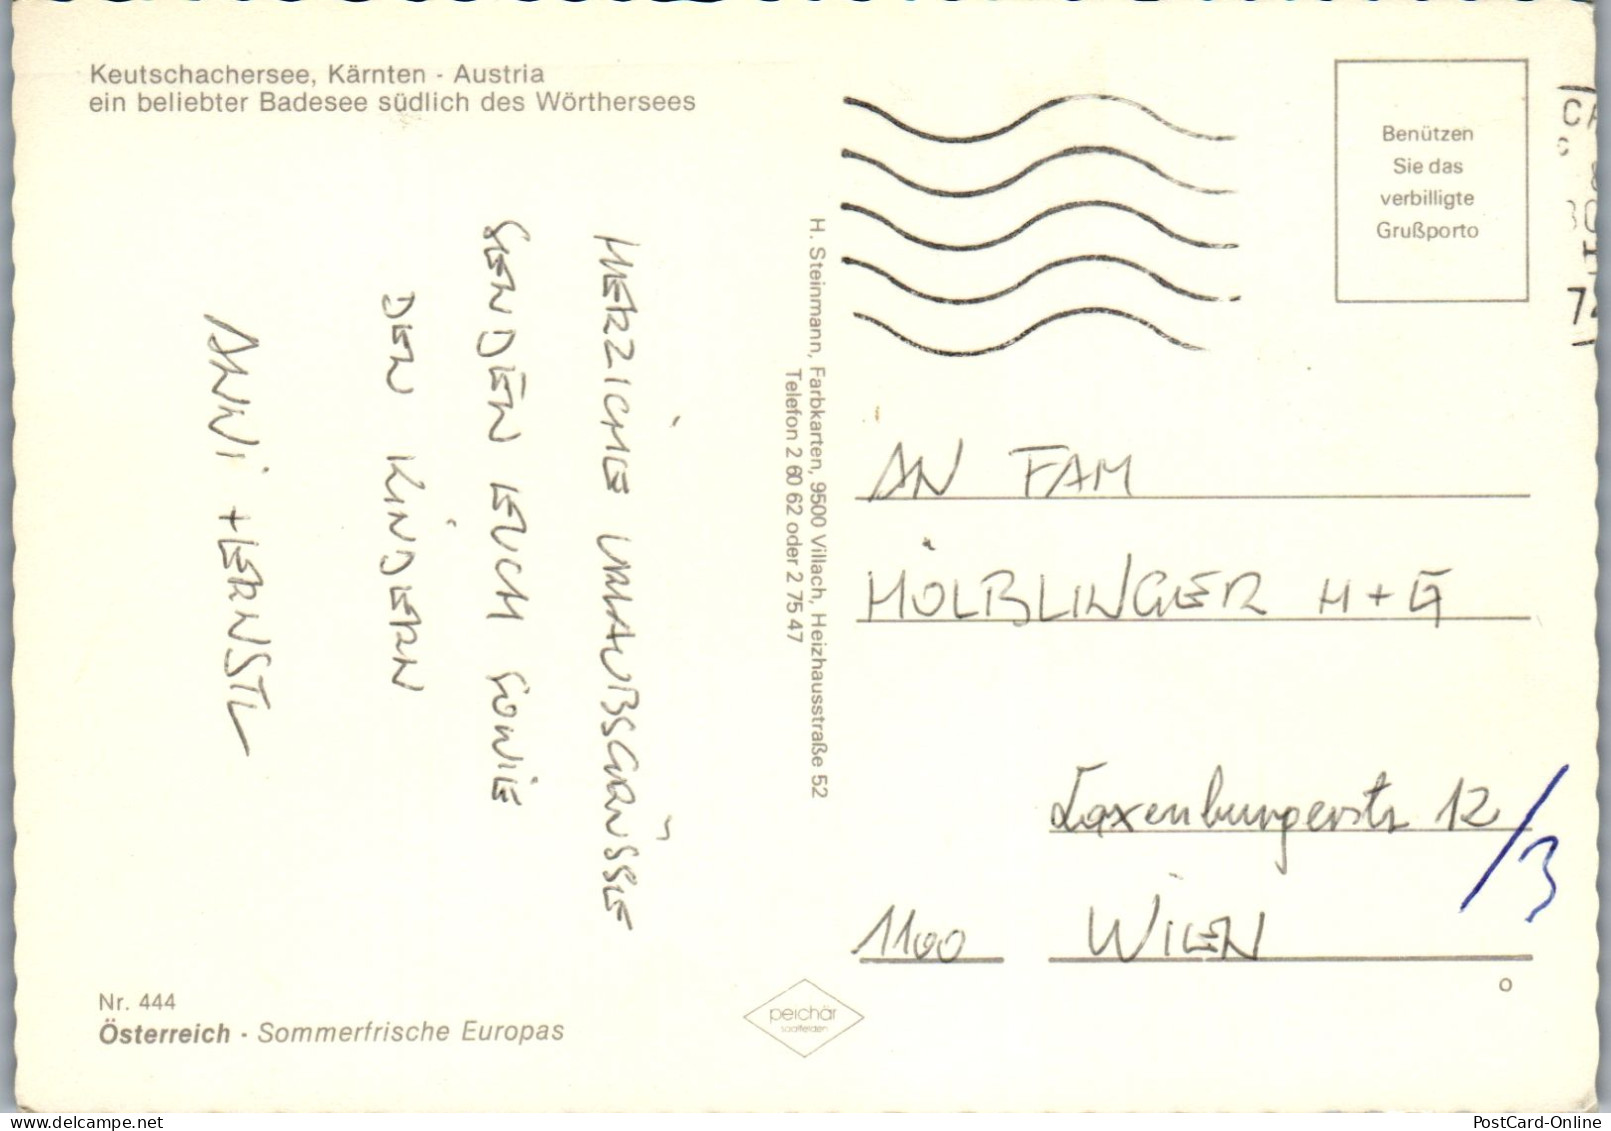 Keutschachersee, Kärnten - Austria
ein beliebter Badesee südlich des Wörthersees
HERZICHE URLAUBSGRÜSSE
SENDEN EUCH SOWIE
DEN KINDERN
ANNI + ERNSTL
H. Steinmann, Farbkarten, 9500 Villach, Heizhausstraße 52
Telefon 2 60 62 oder 2 75 47
Benützen
Sie das
verbilligte
Grußporto
AN FAM
HÖLBLINGER H + G
Laxenburgerstr 12/3
1100 WIEN
o
Nr. 444
Österreich - Sommerfrische Europas
peichär
saalfelden
PostCard-Online